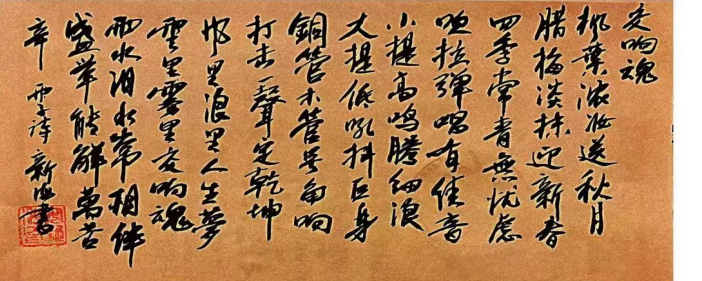 交响魂
枫葉浓妆送秋月
腊梅淡抹迎新春
四季常青無忧虑
吹拉弹唱有佳音
小提高鸣腾细浪
大提低吼抖巨身
銅管木管号角响
打击一聲定乾坤
风里浪里人生夢
雲里雾里交响魂
雨水泪水常相伴
盛举能解萬苦
辛 雨诗 新海書